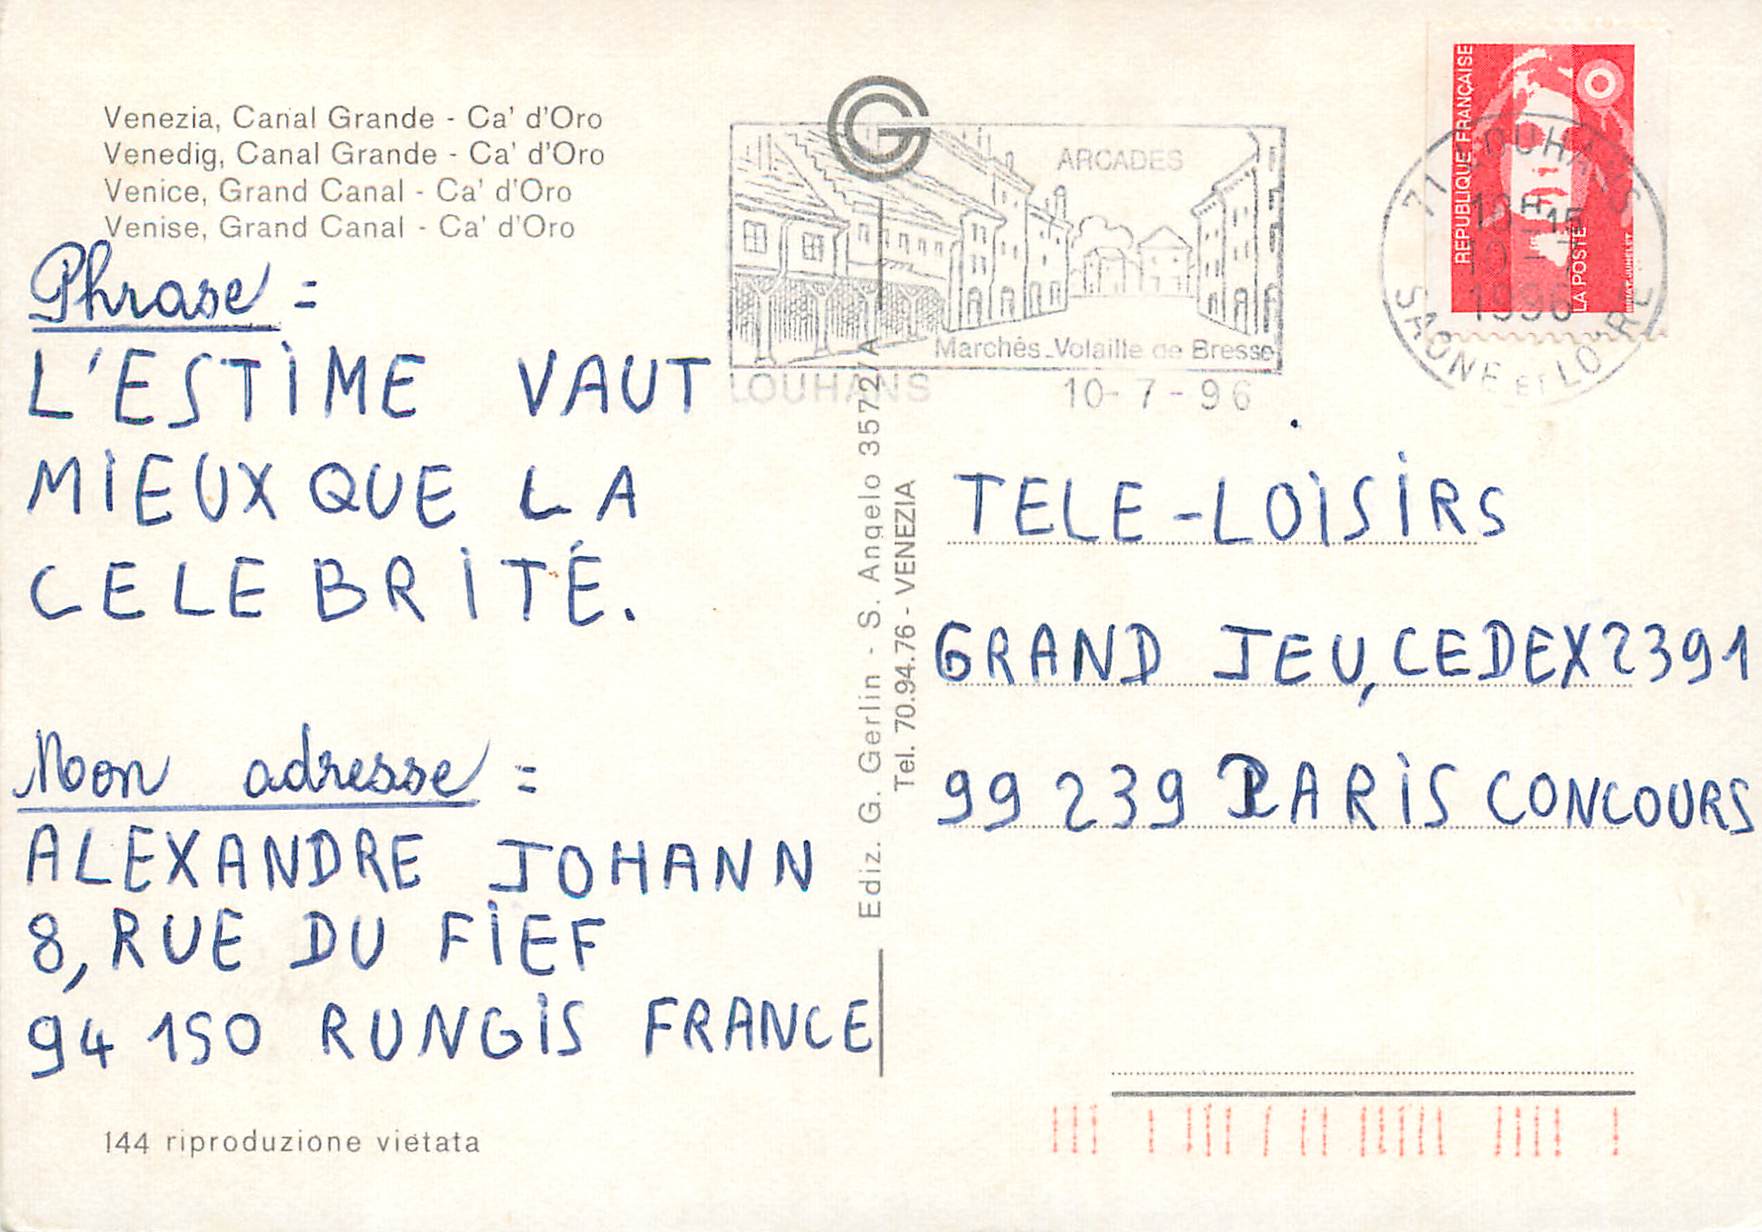 Venezia, Canal Grande - Ca' d'Oro
Venedig, Canal Grande - Ca' d'Oro
Venice, Grand Canal - Ca' d'Oro
Venise, Grand Canal - Ca' d'Oro
Phrase =
L'ESTIME VAUT
MIEUX QUE LA
CELEBRITÉ.
Mon adresse =
ALEXANDRE JOHANN
8, RUE DU FIEF
94 150 RUNGIS FRANCE
144 riproduzione vietata
Ediz. G. Gerlin - S. Angelo 3572/A
Tel. 70.94.76 - VENEZIA
ARCADES
Marchés_Volaille de Bresse
LOUHANS
10-7-96
REPUBLIQUE FRANÇAISE
LA POSTE
71 LOUHANS
1996
SAONE ET LOIRE
TELE-LOISIRS
GRAND JEU, CEDEX 2391
99 239 PARIS CONCOURS